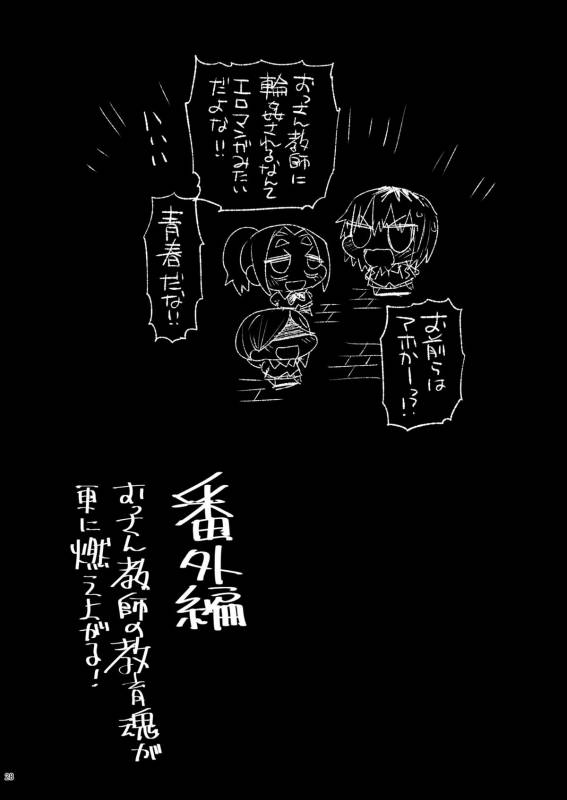 おっさん教師に
輪姦されるなんて
エロマンガみたい
だよな!!
ハハハ
青春だな!!
お前らは
アホかーっ!?
番外編
おっさん教師の教育魂が
更に燃え上がる!
28